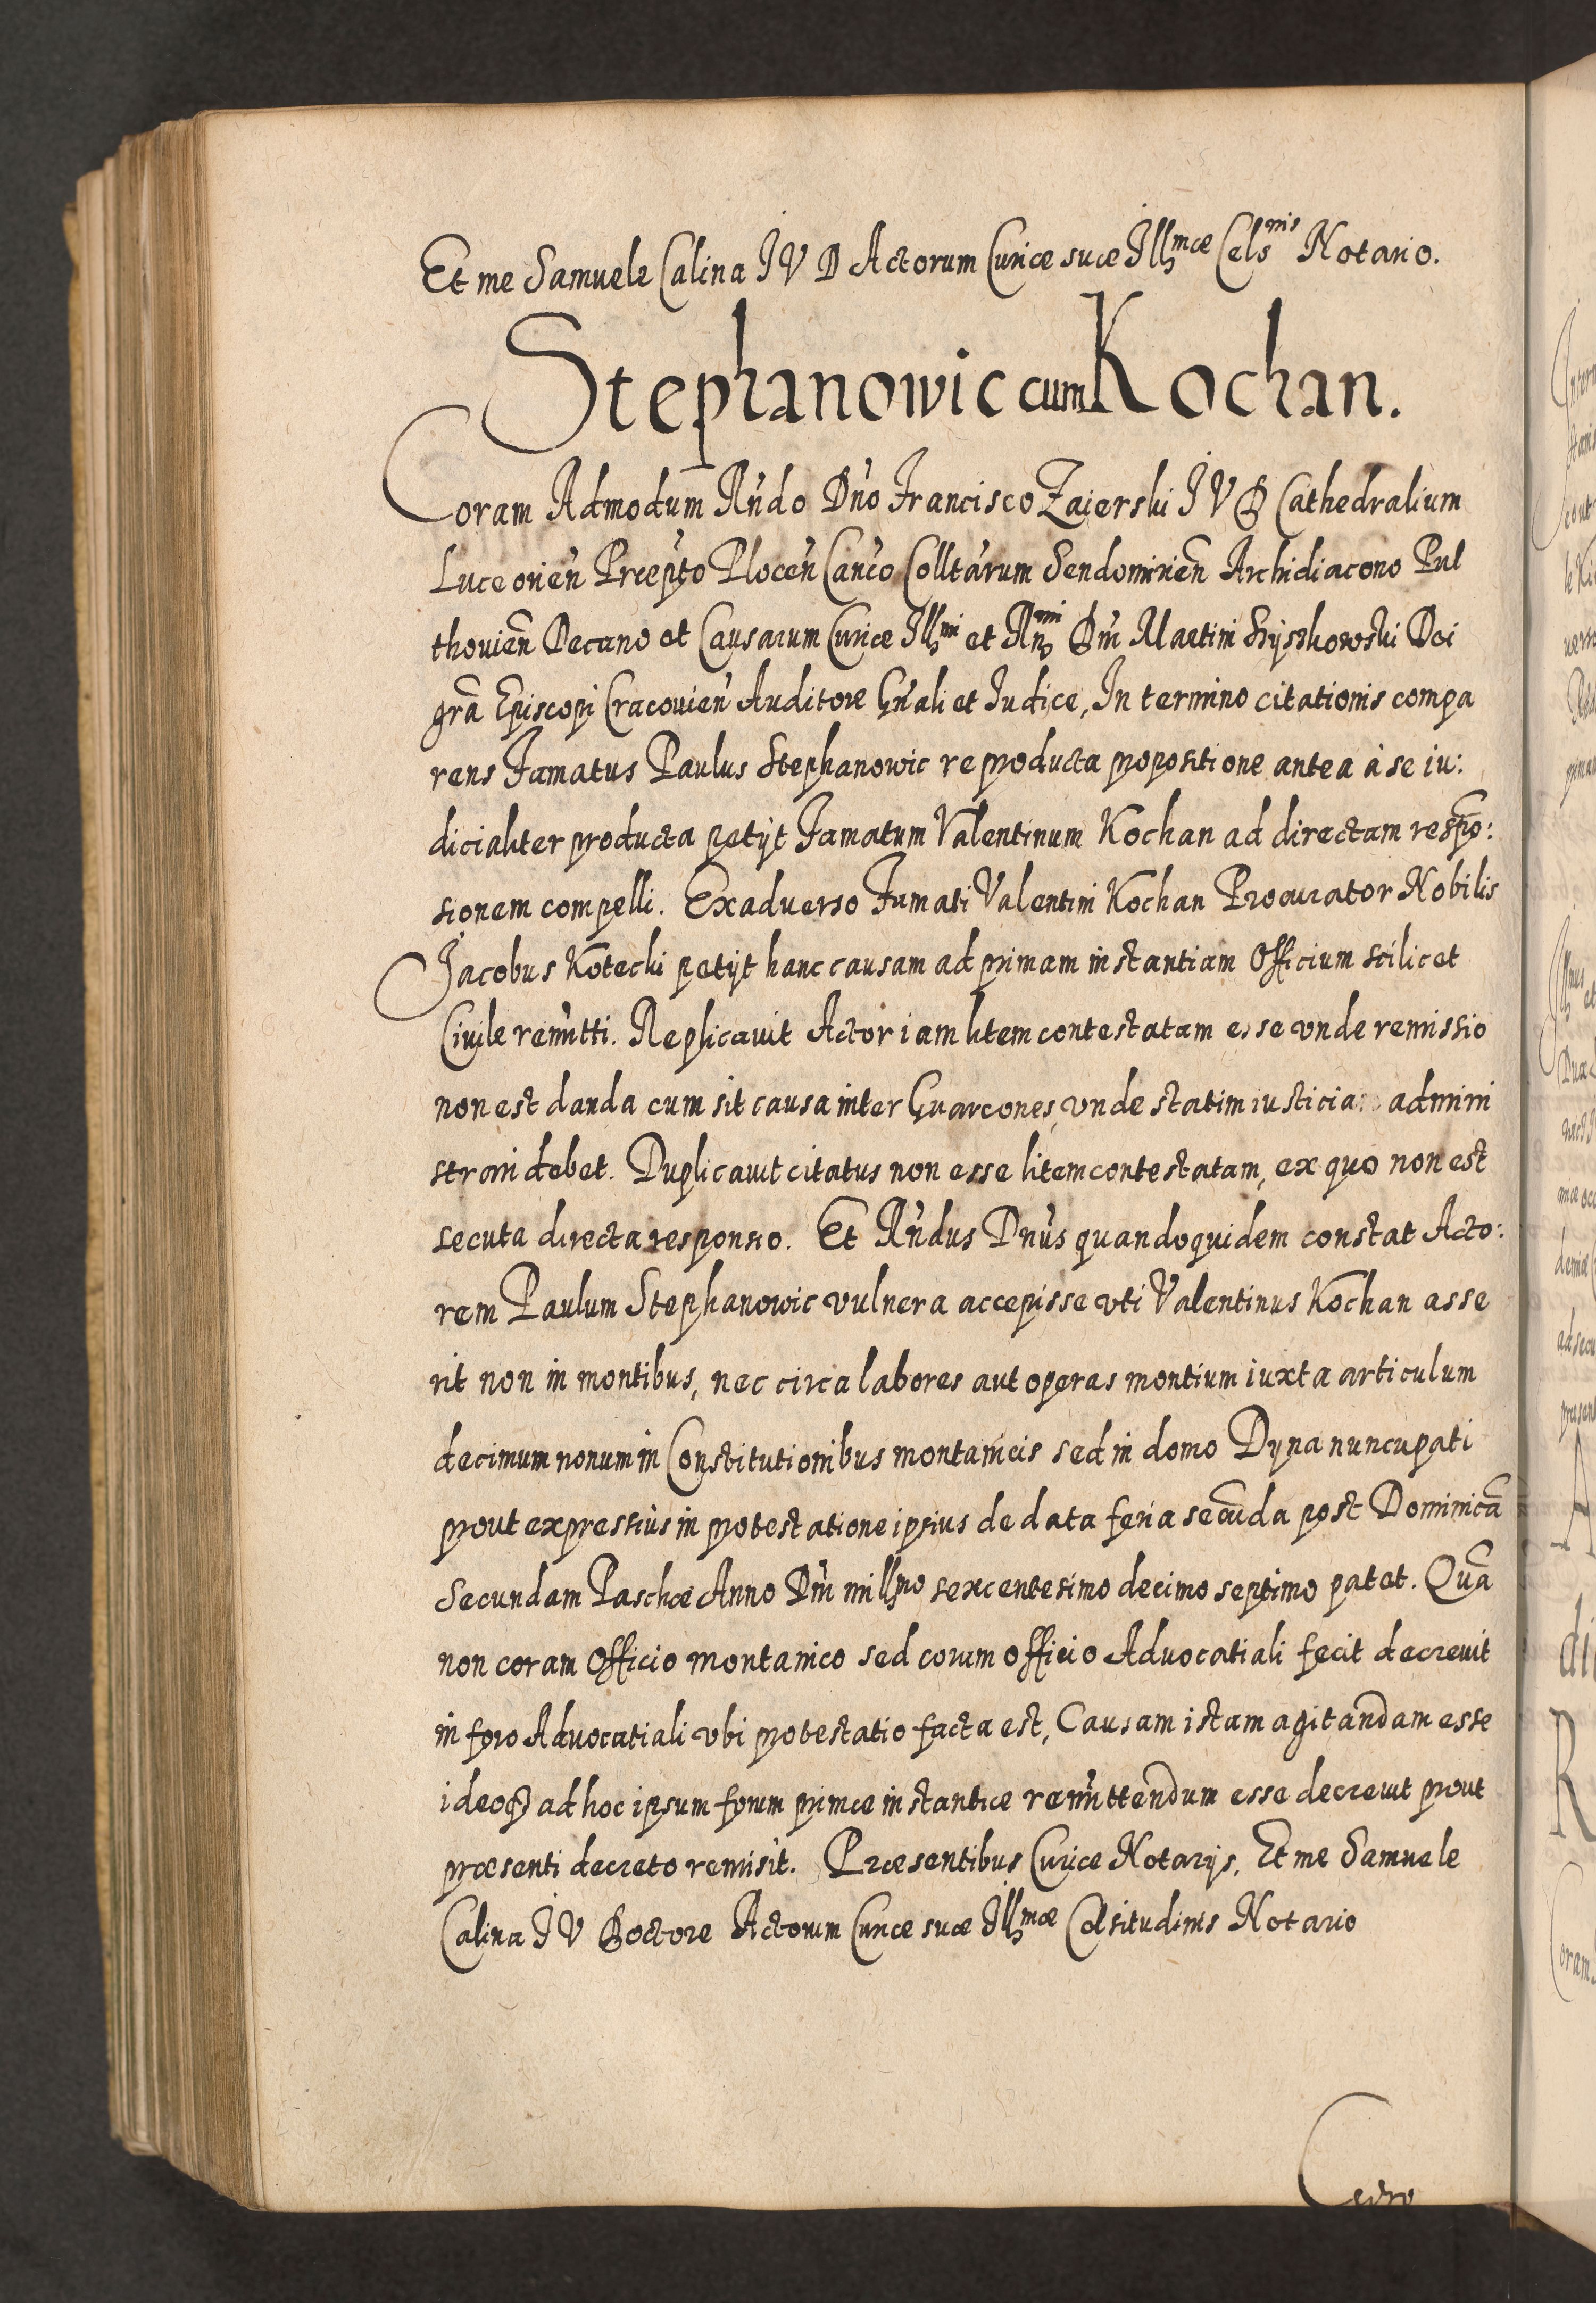 Et me Samuele Calina I V D Actorum Curiæ suæ Illmæ Celsnis Notario.
Stephanowic cum Kochan.
Coram Admodum Rndo Dno Francisco Zaierski I V D Cathedralium
Luceorien Præpto Plocen Canco Colltarum Sendomirien Archidiacono Pul
thouien Decano et Causarum Curiæ Illmi et Rnmi Dni Martini Szyszkowski Dei
gra Episcopi Cracouien Auditore Gnali et Iudice, In termino citationis compa
rens Famatus Paulus Stephanowic reproducta propositione antea à se iu:
dicialiter producta petijt Famatum Valentinum Kochan ad directam respo:
sionem compelli. Exaduerso Famati Valentini Kochan Procurator Nobilis
Jacobus Kotecki petijt hanc causam ad primam instantiam Officium scilicet
Ciuile remitti. Replicauit Actor iam litem contestatam esse vnde remissio
non est danda cum sit causa inter Guarcones, vnde statim iusticia admini
strari debet. Duplicauit citatus non esse litem contestatam, ex quo non est
secuta directa responsio. Et Rndus Dnus quandoquidem constat Acto:
rem Paulum Stephanowic vulnera accepisse vti Valentinus Kochan asse
rit non in montibus, nec circa labores aut operas montium iuxta articulum
decimum nonum in Constitutionibus montanicis sed in domo Dyna nuncupati
prout expressius in protestatione ipsius de data feria secunda post Dominica
Secundam Paschæ Anno Dni millmo sexcentesimo decimo septimo patet. Qua
non coram Officio montanico sed coram officio Aduocatiali fecit decreuit
in foro Aduocatiali vbi protestatio facta est, Causam istam agitandam esse
ideoq; ad hoc ipsum forum primæ instantiæ remittendum esse decreuit prout
præsenti decreto remisit. Præsentibus Curiæ Notarijs. Et me Samuele
Calina I V Doctore Actorum Curiæ suæ Illmæ Celsitudinis Notario